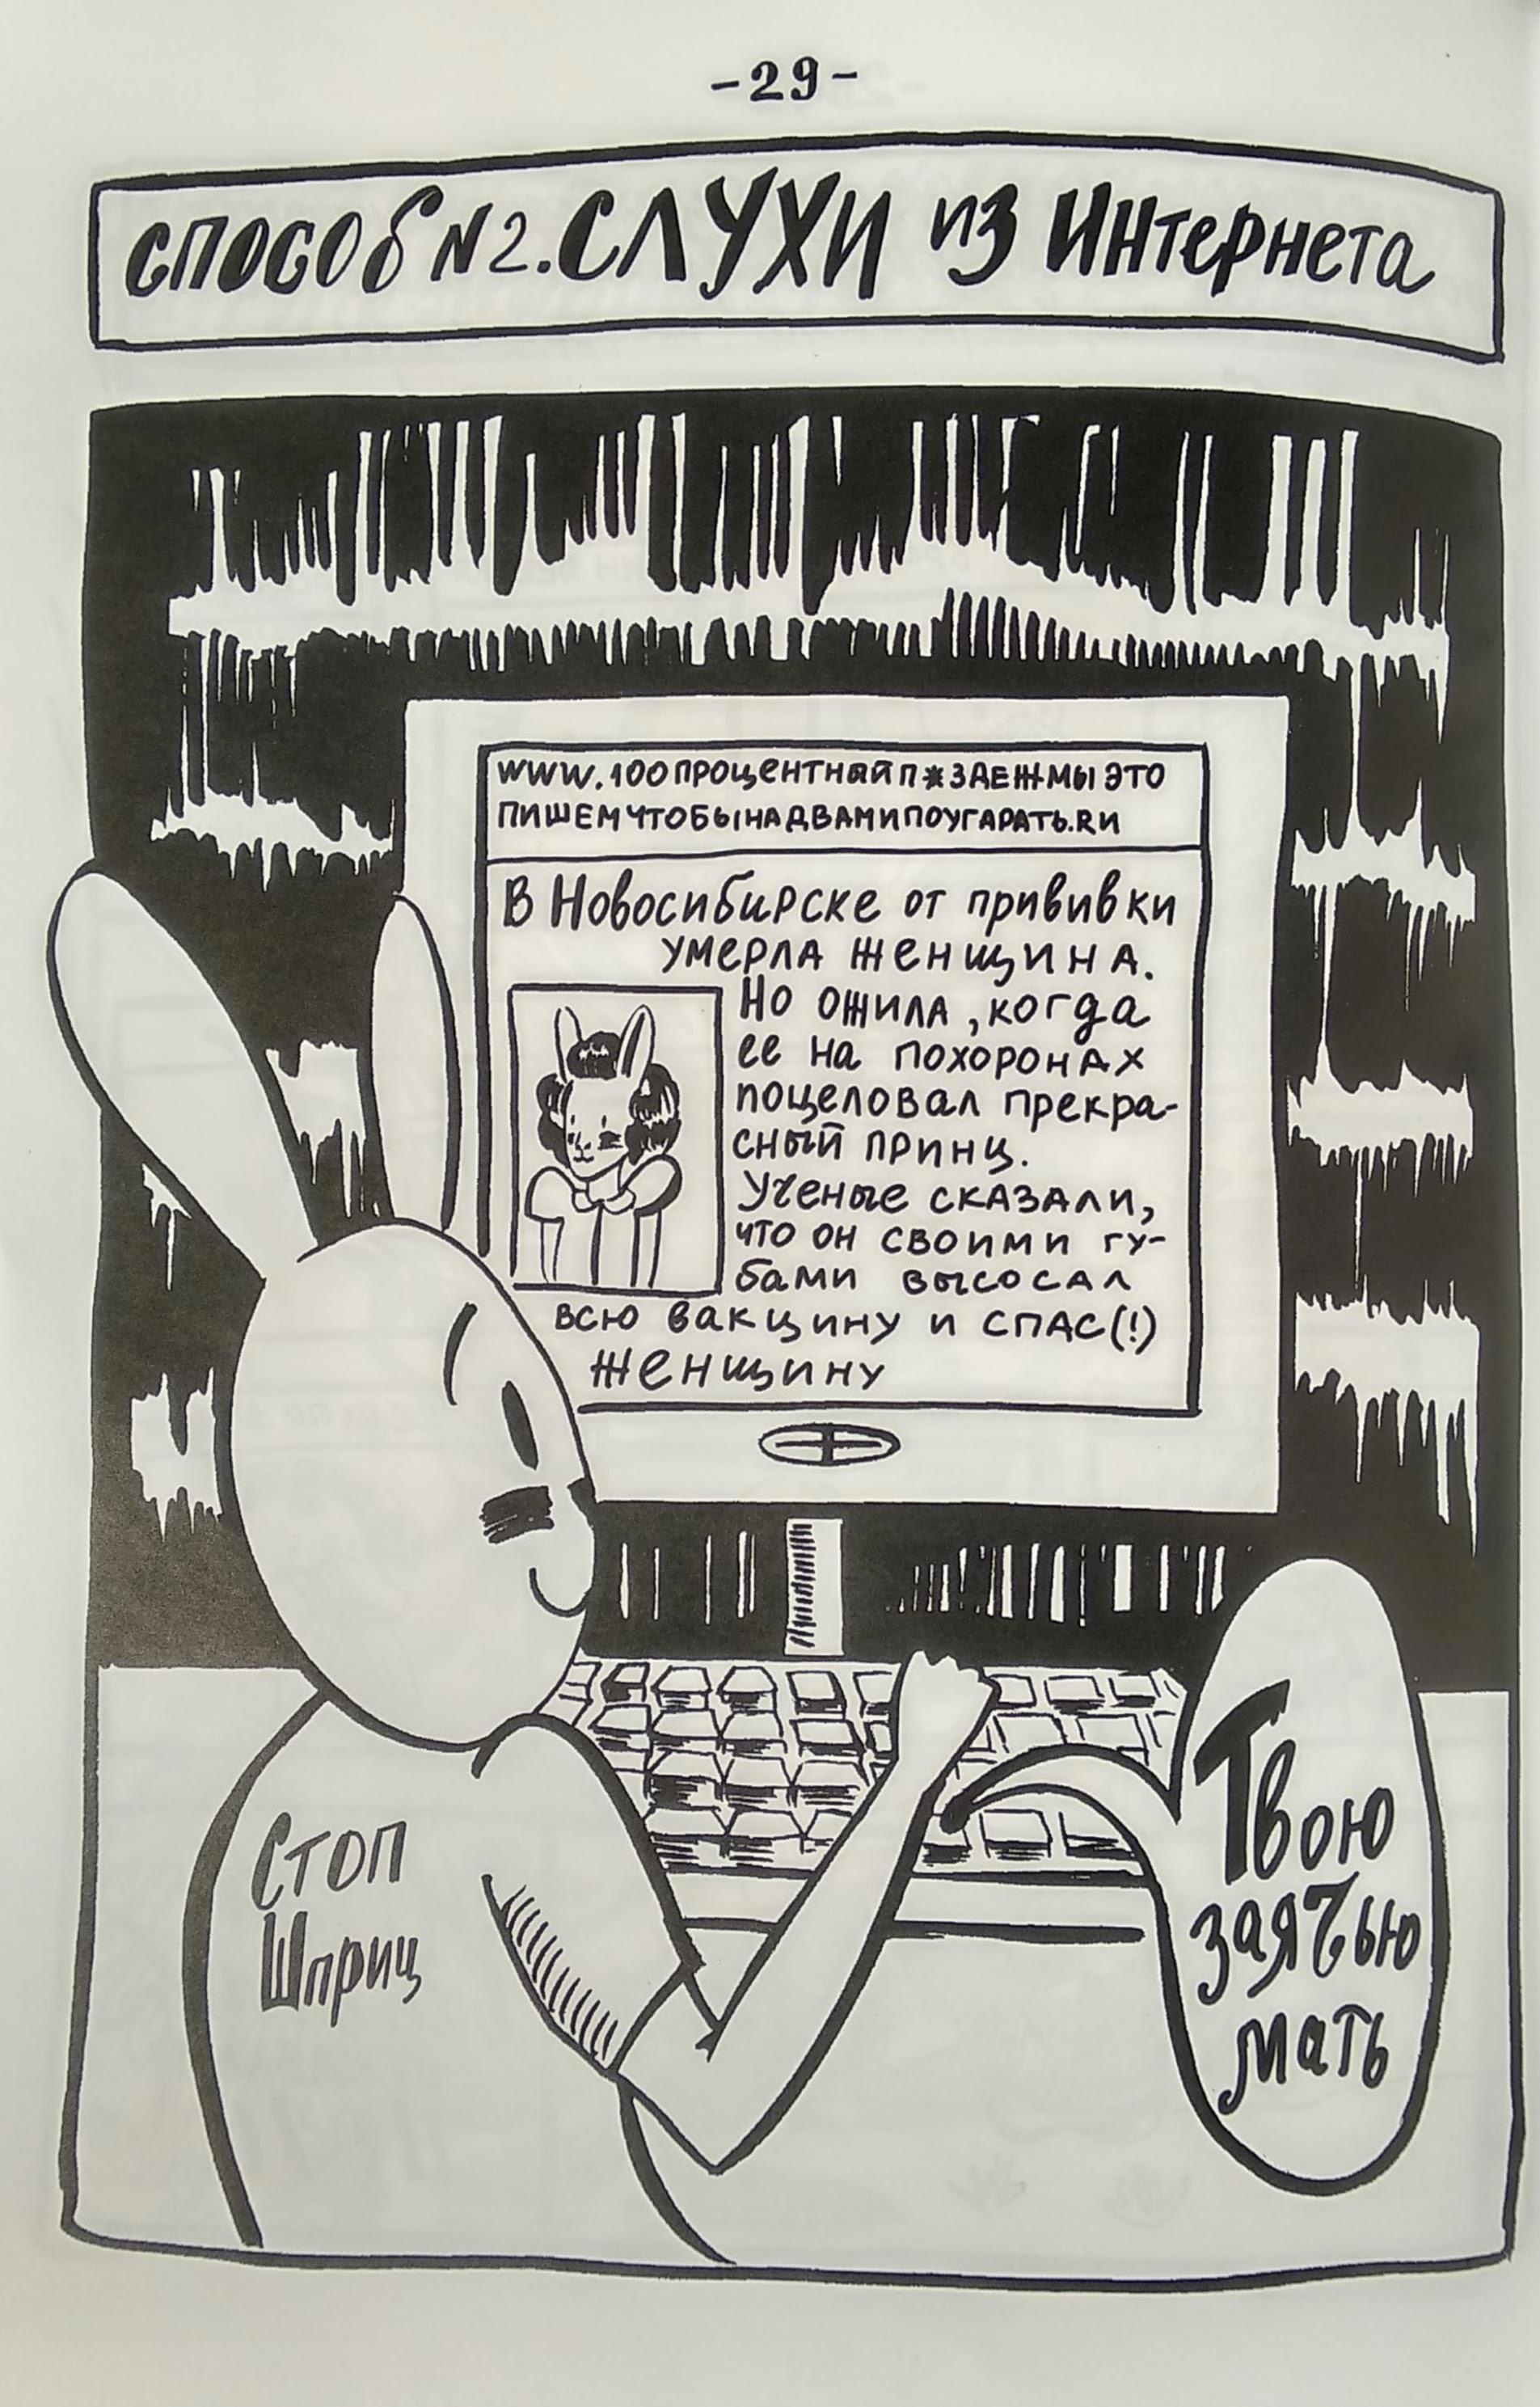 -29-
способ N2. СЛУХИ из Интернета
www.100процентныйп*здежмыэто
пишемчтобынадвамипоугарать.Ru
В Новосибирске от прививки
умерла женщина.
Но ожила, когда
ее на похоронах
поцеловал прекра-
сный принц.
Ученые сказали,
что он своими гу-
бами высосал
всю вакцину и спас(!)
женщину
Стоп
Шприц
Твою
заячью
мать